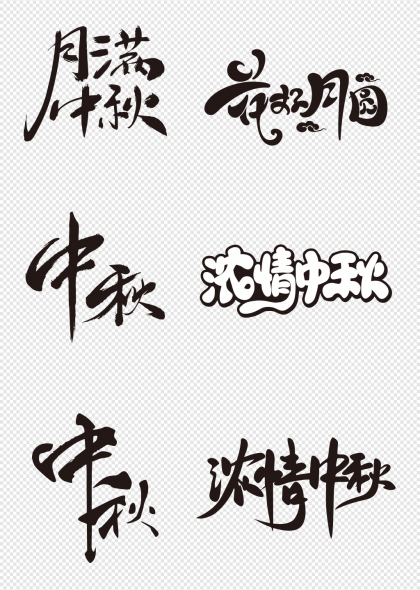 月满
中秋
花好月圆
中秋
浓情中秋
中秋
浓情中秋